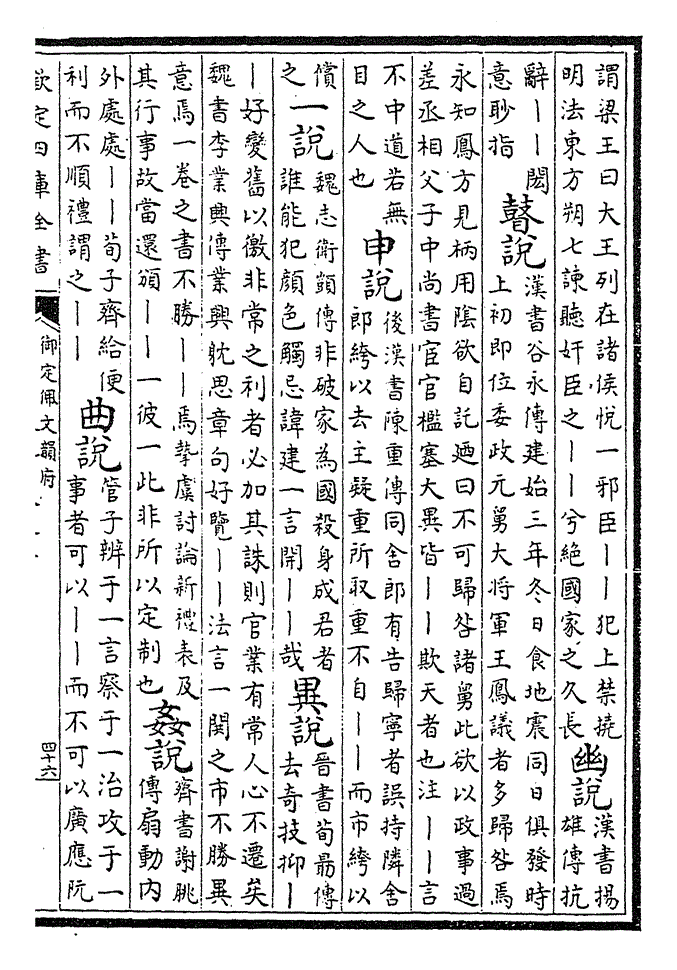 謂梁王曰大王列在諸侯悅一邪臣丨丨犯上禁撓
明法東方朔七諫聽奸臣之丨丨兮絶國家之久長
幽說
漢書揚
雄傳抗
辭丨丨閎
意眇指
瞽說
漢書谷永傳建始三年冬日食地震同日俱發時
上初即位委政元舅大將軍王鳳議者多歸咎焉
永知鳳方見柄用陰欲自託廼曰不可歸咎諸舅此欲以政事過
差丞相父子中尚書宦官檻塞大異皆丨丨欺天者也注丨丨言
不中道若無
目之人也
申說
後漢書陳重傳同舍郎有告歸寧者誤持隣舍
郎絝以去主疑重所取重不自丨丨而市絝以
償
之
一說
魏志衛顗傳非破家為國殺身成君者
誰能犯顔色觸忌諱建一言開丨丨哉
異說
晉書荀勗傳
去奇技抑丨
丨好變舊以徼非常之利者必加其誅則官業有常人心不遷矣
魏書李業興傳業興躭思章句好覽丨丨法言一閧之市不勝異
意焉一卷之書不勝丨丨焉摯虞討論新禮表及
其行事故當還頒丨丨一彼一此非所以定制也
姦說
齊書謝朓
傳扇動内
外處處丨丨荀子齊給便
利而不順禮謂之丨丨
曲說
管子辨于一言察于一治攻于一
事者可以丨丨而不可以廣應阮
欽定四庫全書
御定佩文韻府
四十六